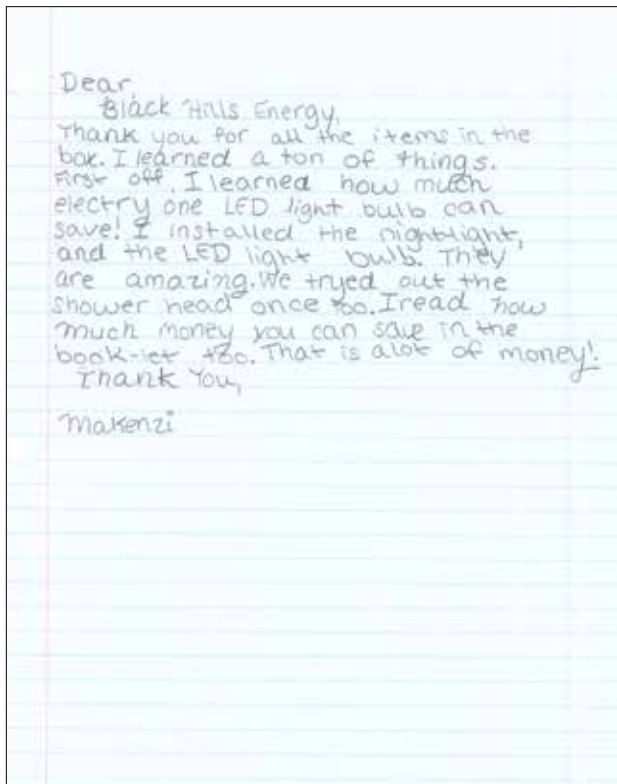 Dear
Black Hills Energy,
Thank you for all the items in the
box. I learned a ton of things.
First off, I learned how much
electry one LED light bulb can
save! I installed the nightlight,
and the LED light bulb. They
are amazing. We tryed out the
shower head once too. I read how
much money you can save in the
book-let too. That is alot of money!
Thank You,
Makenzi